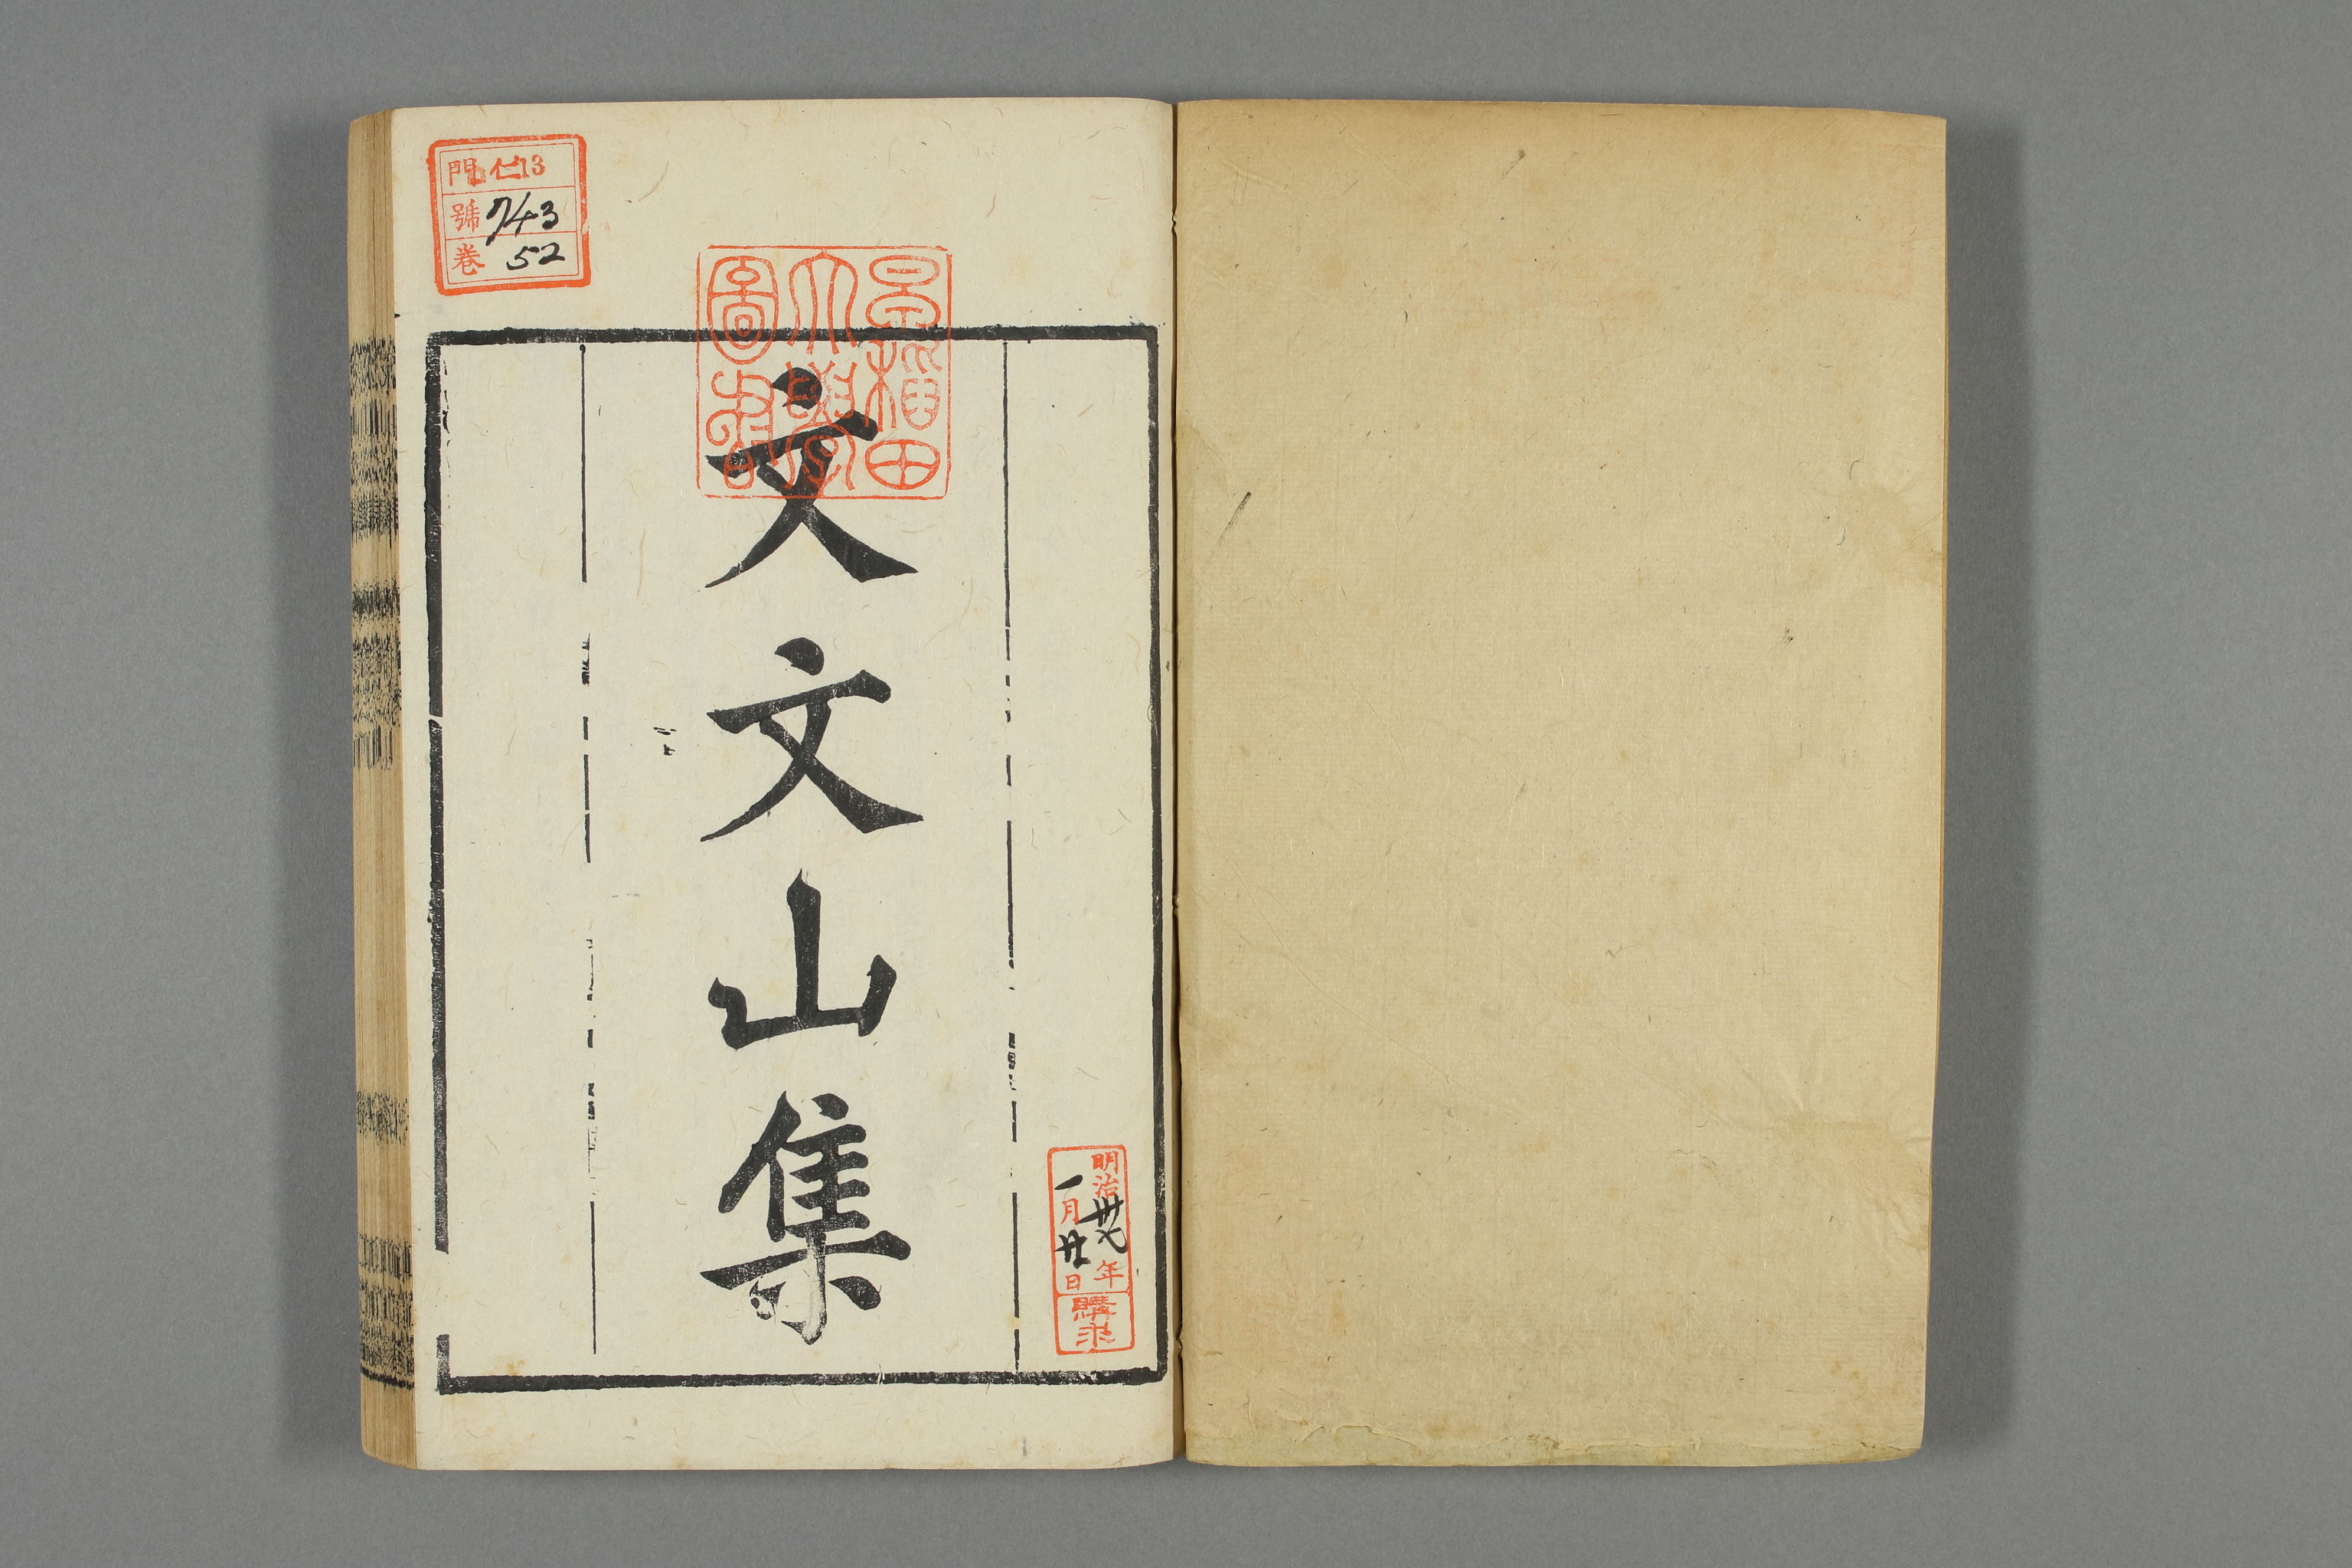 文文山集
早稲田
大學
圖書
門 仁13
號 743
卷 52
明治卅七年
一月廿日
購求